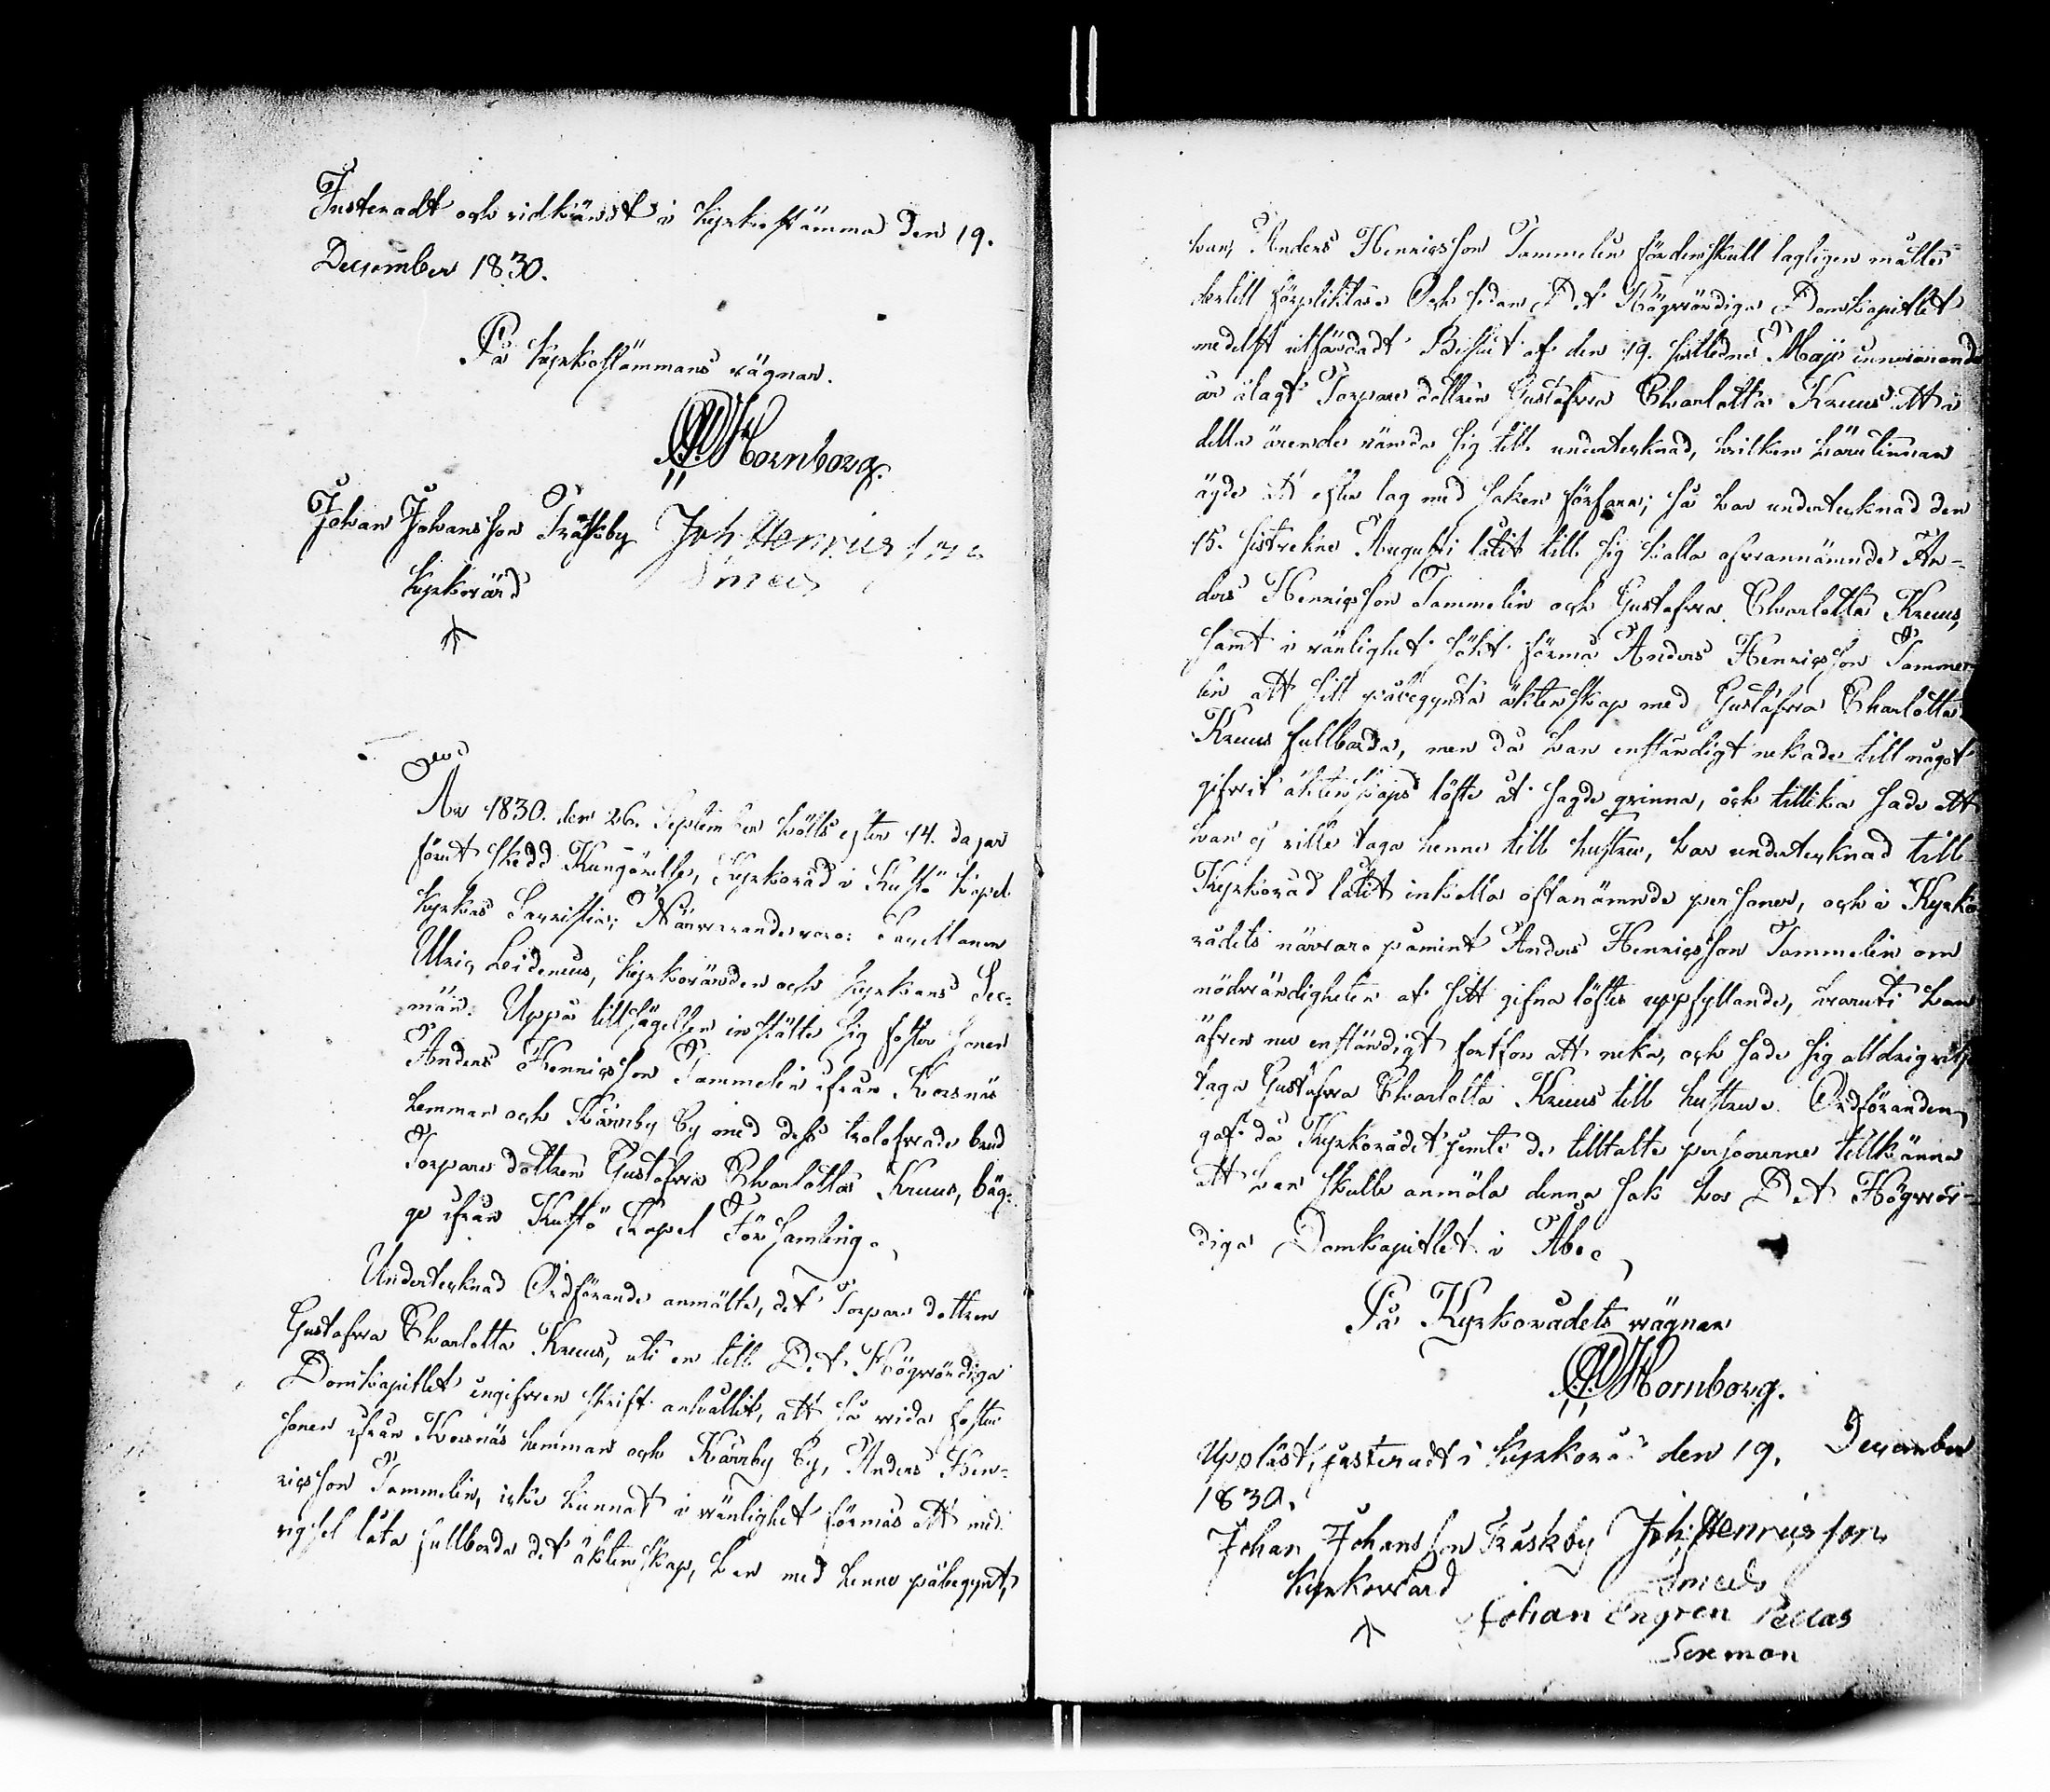 Justeradt och vidkändt i Kyrkostämma den 19.
December 1830.
På Kyrkostämmans vägnar.
Hornborg.
Johan Johansson Träskby Joh Henricsson
Kyrkovärd Smeds
År 1830. den 26. September hölts efter 14. dagar
förut skedd Kungörelse, Kyrkoråd i Kustö Capel
kyrkas Sacristia; Närvarande voro: Capellanen
Ulric Leidenius, Kyrkovärden och kyrkans Sex-
män. Uppå tillsägelse inställte sig foster sonen
Anders Henricsson Tammelin ifrån Korsnäs
hemman och Kärrby by med dess trolofvade brud
Torpare dottren Gustafva Charlotta Kruus, bäg-
ge ifrån Kustö Capel Församling.
Undertecknad Ordförande anmälte, det Torpare dottren
Gustafva Charlotta Kruus, uti en till Det Högvördiga
Domkapitlet ingifven skrift anhållit, att så vida foster
sonen ifrån Korsnäs hemman och Kärrby by, Anders Hen-
ricsson Tammelin, icke kunnat i vänlighet förmås att med
vigsel låta fullborda det äktenskap, han med henne påbegynt,
han, Anders Henricsson Tammelin fördenskull lagligen måtte
dertill förpliktas. Och sedan Det Högvördiga Domkapitlet
medelst utfärdadt Beslut af den 19. sistledne Maji innevarande
år ålagt Torpare dottren Gustafva Charlotta Kruus att i
detta ärende vända sig till undertecknad, hvilken härutinnan
ägde at efter lag med saken förfara; så har undertecknad den
15. sistvekne Augusti låtit till sig kalla ofvannämnde An-
ders Henricsson Tammelin och Gustafva Charlotta Kruus,
samt i vänlighet sökt förmå Anders Henricsson Tamme-
lin att sitt påbegynta äktenskap med Gustafva Charlotta
Kruus fullborda, men då han enständigt nekade till något
gifvit äktenskaps löfte åt sagde qvinna, och tillika sade att
han ej ville taga henne till hustru, har undertecknad till
Kyrkoråd låtit inkalla oftanämnde personer, och i Kyrko
rådets närvaro påmint Anders Henricsson Tammelin om
nödvändigheten af sitt gifna löftes uppfyllande, hvaruti han
äfven nu enständigt fortfor att neka, och sade sig alldrig vilja
taga Gustafva Charlotta Kruus till hustru. Ordföranden
gaf då Kyrkorådet jemte de tilltalte personerne tillkänna
att han skulle anmäla denna sak hos Det Högvör-
diga Domkapitlet i Åbo.
På Kyrkorådets vägnar
Hornborg.
Uppläst, justeradt i Kyrkoråd den 19. December
1830.
Johan Johansson Träskby Joh: Henricsson
Kyrkovärd Smeds
Johan Engren Pellas
Sexman